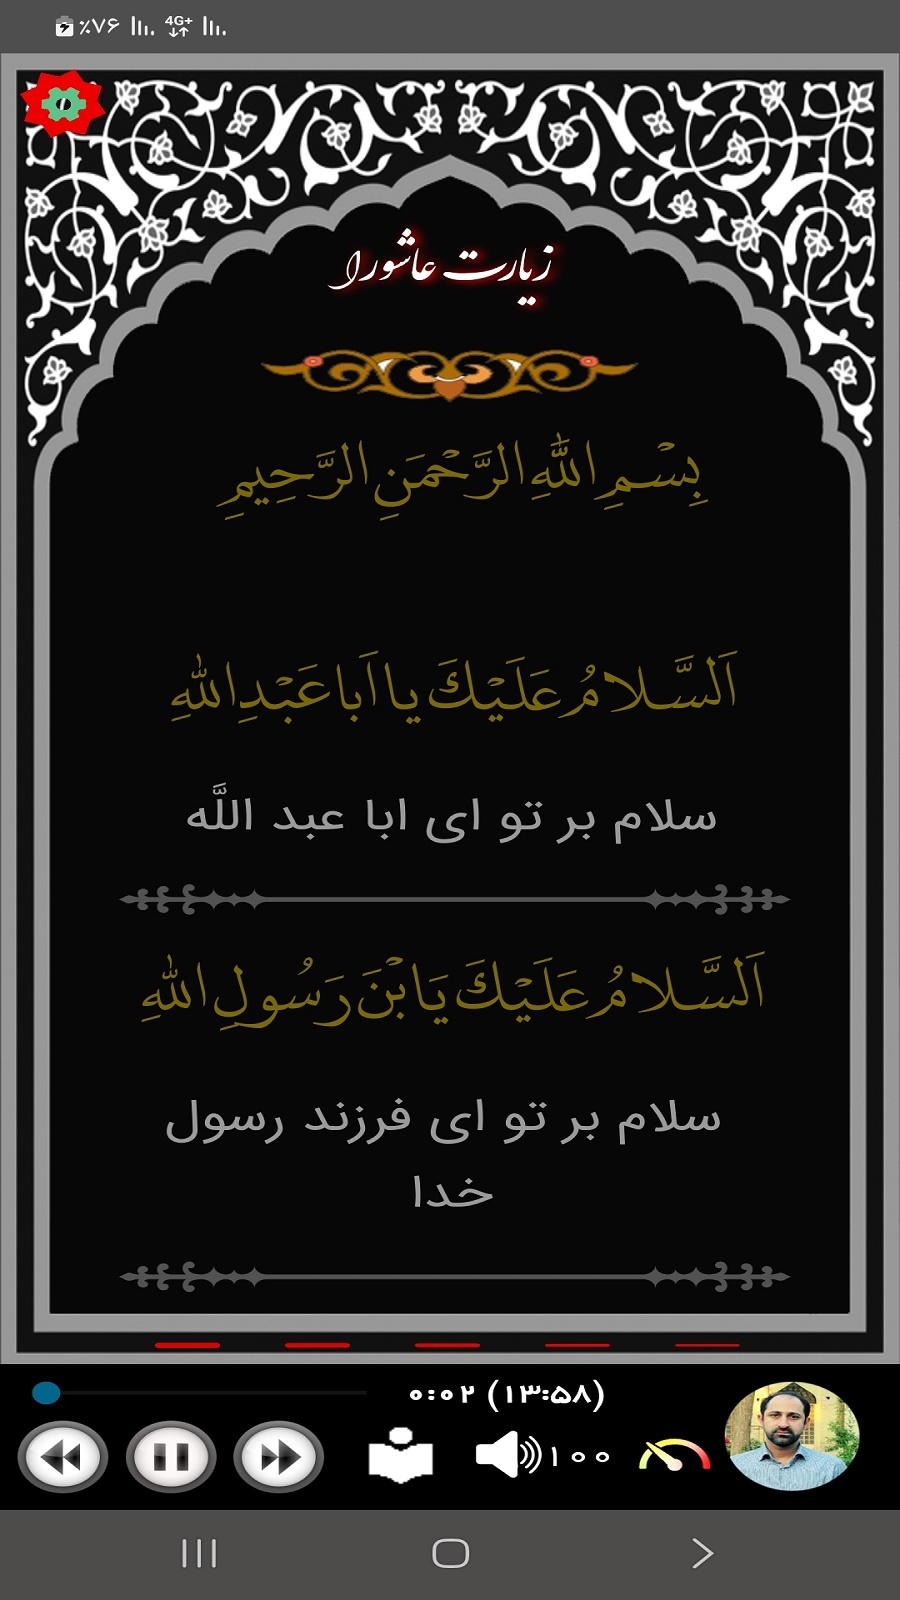 ٪۷۶ 4G+
زیارت عاشورا
بِسْمِ اللّٰهِ الرَّحْمَنِ الرَّحِيمِ
اَلسَّلامُ عَلَيْكَ يا اَبا عَبْدِاللّٰهِ
سلام بر تو ای ابا عبد اللَّه
اَلسَّلامُ عَلَيْكَ يَا بْنَ رَسُولِ اللّٰهِ
سلام بر تو ای فرزند رسول
خدا
۰:۰۲ (۱۳:۵۸)
۱۰۰